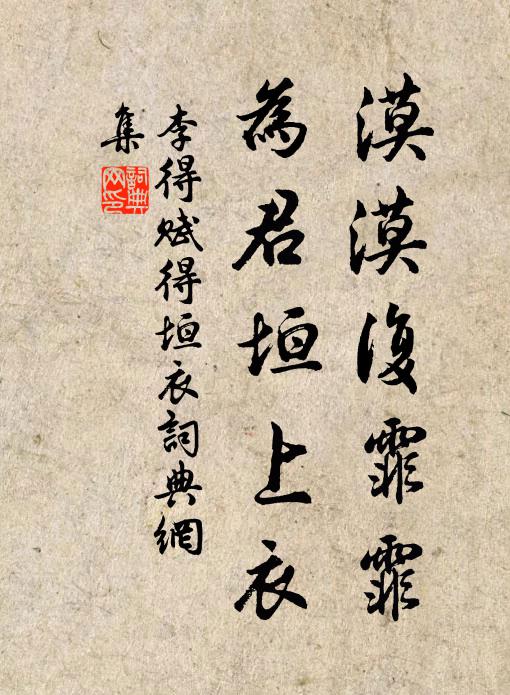 漠漠復霏霏
為君垣上衣
李得賦得垣衣詞典網
集
詞典
网印